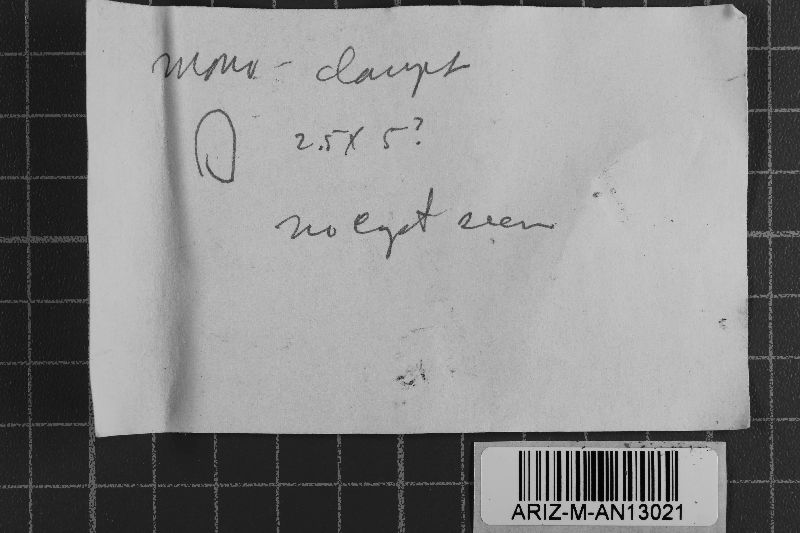 mono - clampt
2.5 X 5?
no cyst seen
ARIZ-M-AN13021